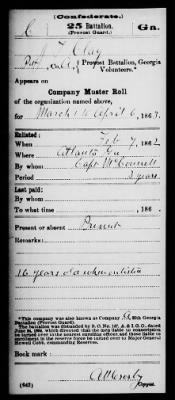 (Confederate.)
C 25 Battalion. Ga.
(Provost Guard.)
J T Clay
Pvt, Co. C, Provost Battalion, Georgia Volunteers.*
Appears on
Company Muster Roll
of the organization named above,
for March 1 to April 6, 1863.
Enlisted:
When Feb 7, 186
Where Atlanta Ga
By whom Capt McConnell
Period 3 years
Last paid:
By whom
To what time , 186 .
Present or absent Present
Remarks:
16 years old when enlisted
*This was also known as Company 25th Georgia
Battalion (Provost Guard).
Book mark:
(642) Copyist.